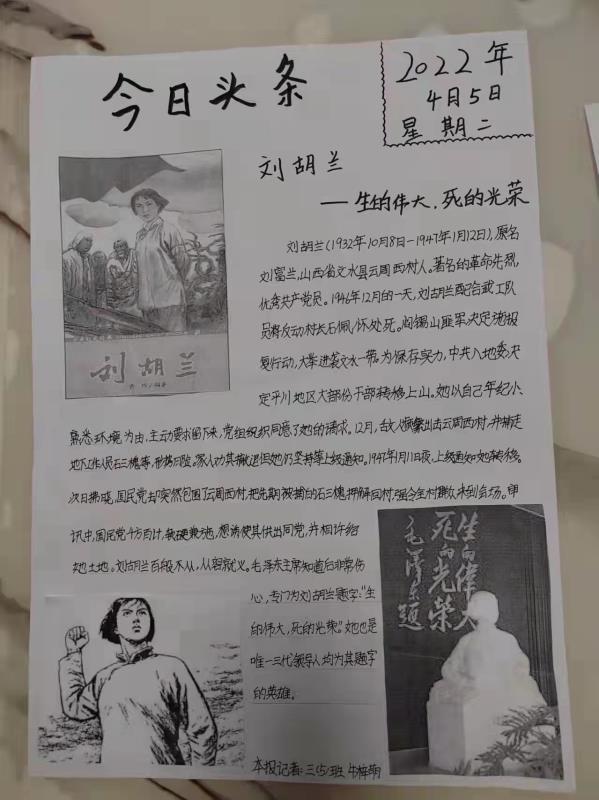 今日头条
2022年
4月5日
星期二
刘胡兰
——生的伟大,死的光荣
刘胡兰
刘胡兰(1932年10月8日-1947年1月12日),原名
刘富兰,山西省文水县云周西村人。著名的革命先烈,
优秀共产党员。1946年12月的一天,刘胡兰配合武工队
员将反动村长石佩怀处死。阎锡山匪军决定施报
复行动,大举进袭文水一带。为保存实力,中共八地委决
定平川地区大部份干部转移上山。她以自己年纪小、
熟悉环境为由,主动要求留下来,党组织同意了她的请求。12月,
地下工作员石三槐等,形势危险。家人劝其搬迁但她仍坚持等上级通知。1947年1月11日夜,上级通知她转移。
次日拂晓,国民党却突然包围了云周西村,把先期被捕的石三槐押解回村,强令全村群众来到会场。审
讯中,国民党千方百计,软硬兼施,想诱使其供出同党,并相许给
她土地。刘胡兰百般不从,从容就义。毛泽东主席知道后非常伤
心,专门为刘胡兰题字:"生
的伟大,死的光荣"。她也是
唯一三代领导人均为其题字
的英雄。
生的伟大
死的光荣
毛泽东题
本报记者:三(5)班 牛梓萌